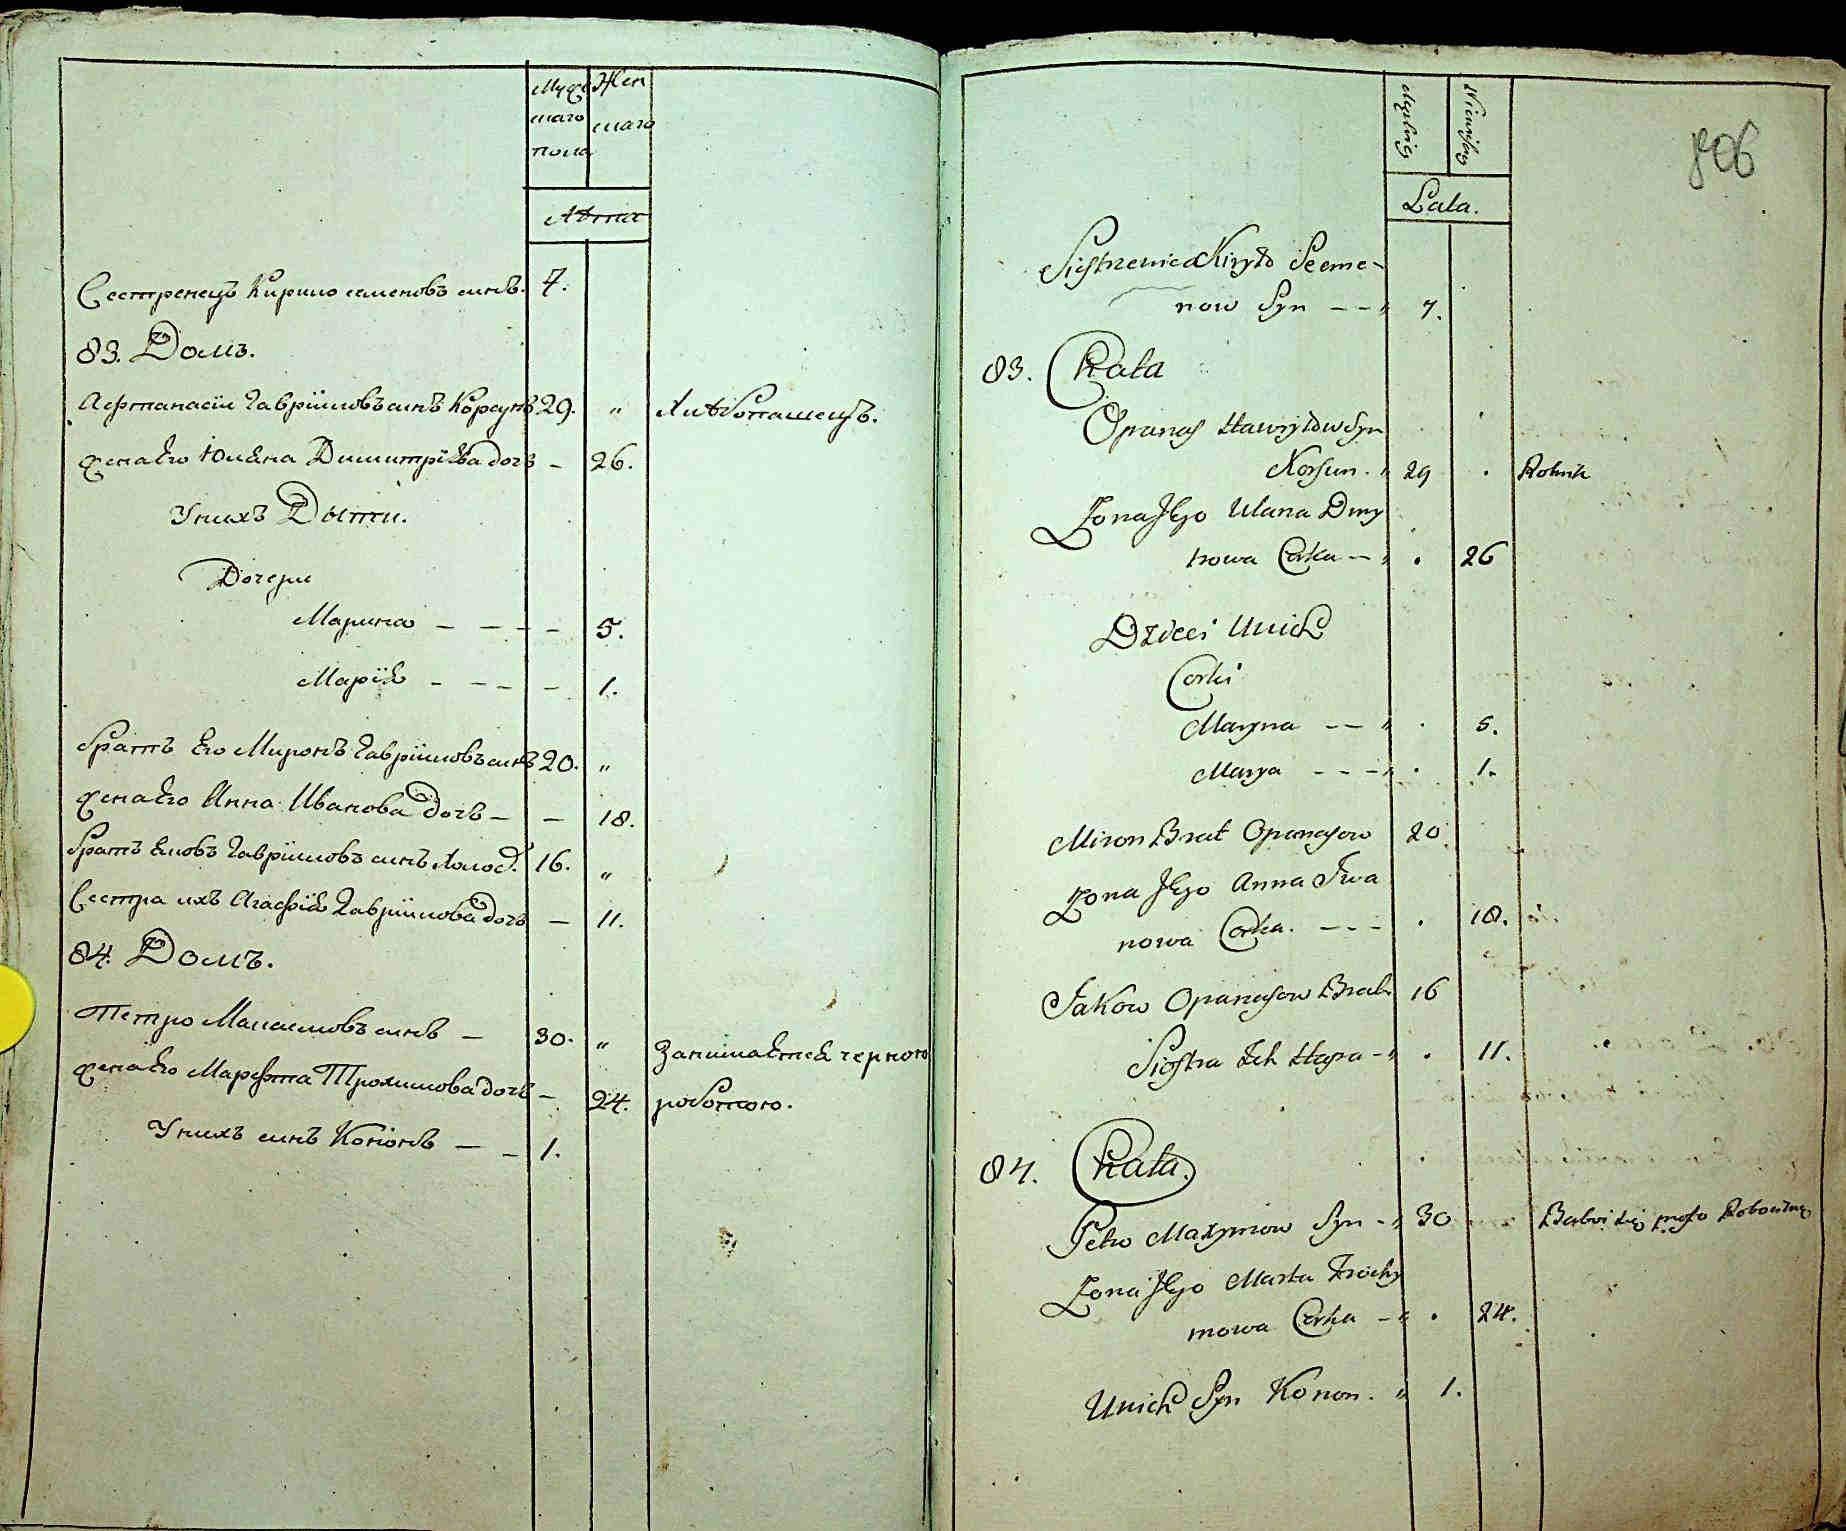 Муже Жен
скаго скаго
пола
Лѣта
Сестренецъ Кирило семеновъ синъ. 7.
83. Домъ.
Афтанасій Гавріиловъ синъ Корсунъ 29. " Хлѣбопашецъ.
жена Его Юлѣна Димитріѣва дочь — 26.
У нихъ Дѣти.
Дочери
Марина — — — — 5.
Маріѣ — — — — 1.
братъ Его Миронъ Гавріиловъ синъ 20. "
жена Его Анна Иванова дочь — — 18.
братъ Яковъ Гавріиловъ синъ Холос. 16. "
Сестра ихъ Агафіѣ Гавріилова дочь — 11.
84. Домъ.
Петро Максимовъ синъ — 30. " Занимаѣтся чорною
жена Его Марфта Трохимова дочь — 24. роботою.
У нихъ синъ Кононъ — — 1.
806
Męskiey Niewieskey
Lata.
Siestrzeniec Kiryło Seeme-
now Syn — — " 7.
83. Chata
Opanas Hawryłow Syn
Korsun. " 29 . Rolnik
Żona Jego Ulana Dmy
trowa Corka — " . 26
Dzieci U nich
Corki
Maryna — — " . 5.
Marya — — — " . 1.
Miron Brat Opanasow 20.
Żona Jego Anna Iwa
nowa Corka. — — — . 18.
Jakow Opanasow Brat 16
Siostra Ich Hapa — " . 11.
84. Chata.
Petro Maxymow Syn — " 30 Babwi się prosto Robocizną
Żona Jego Marta Trochy
mowa Corka — " . 24.
U nich Syn Konon. " 1.